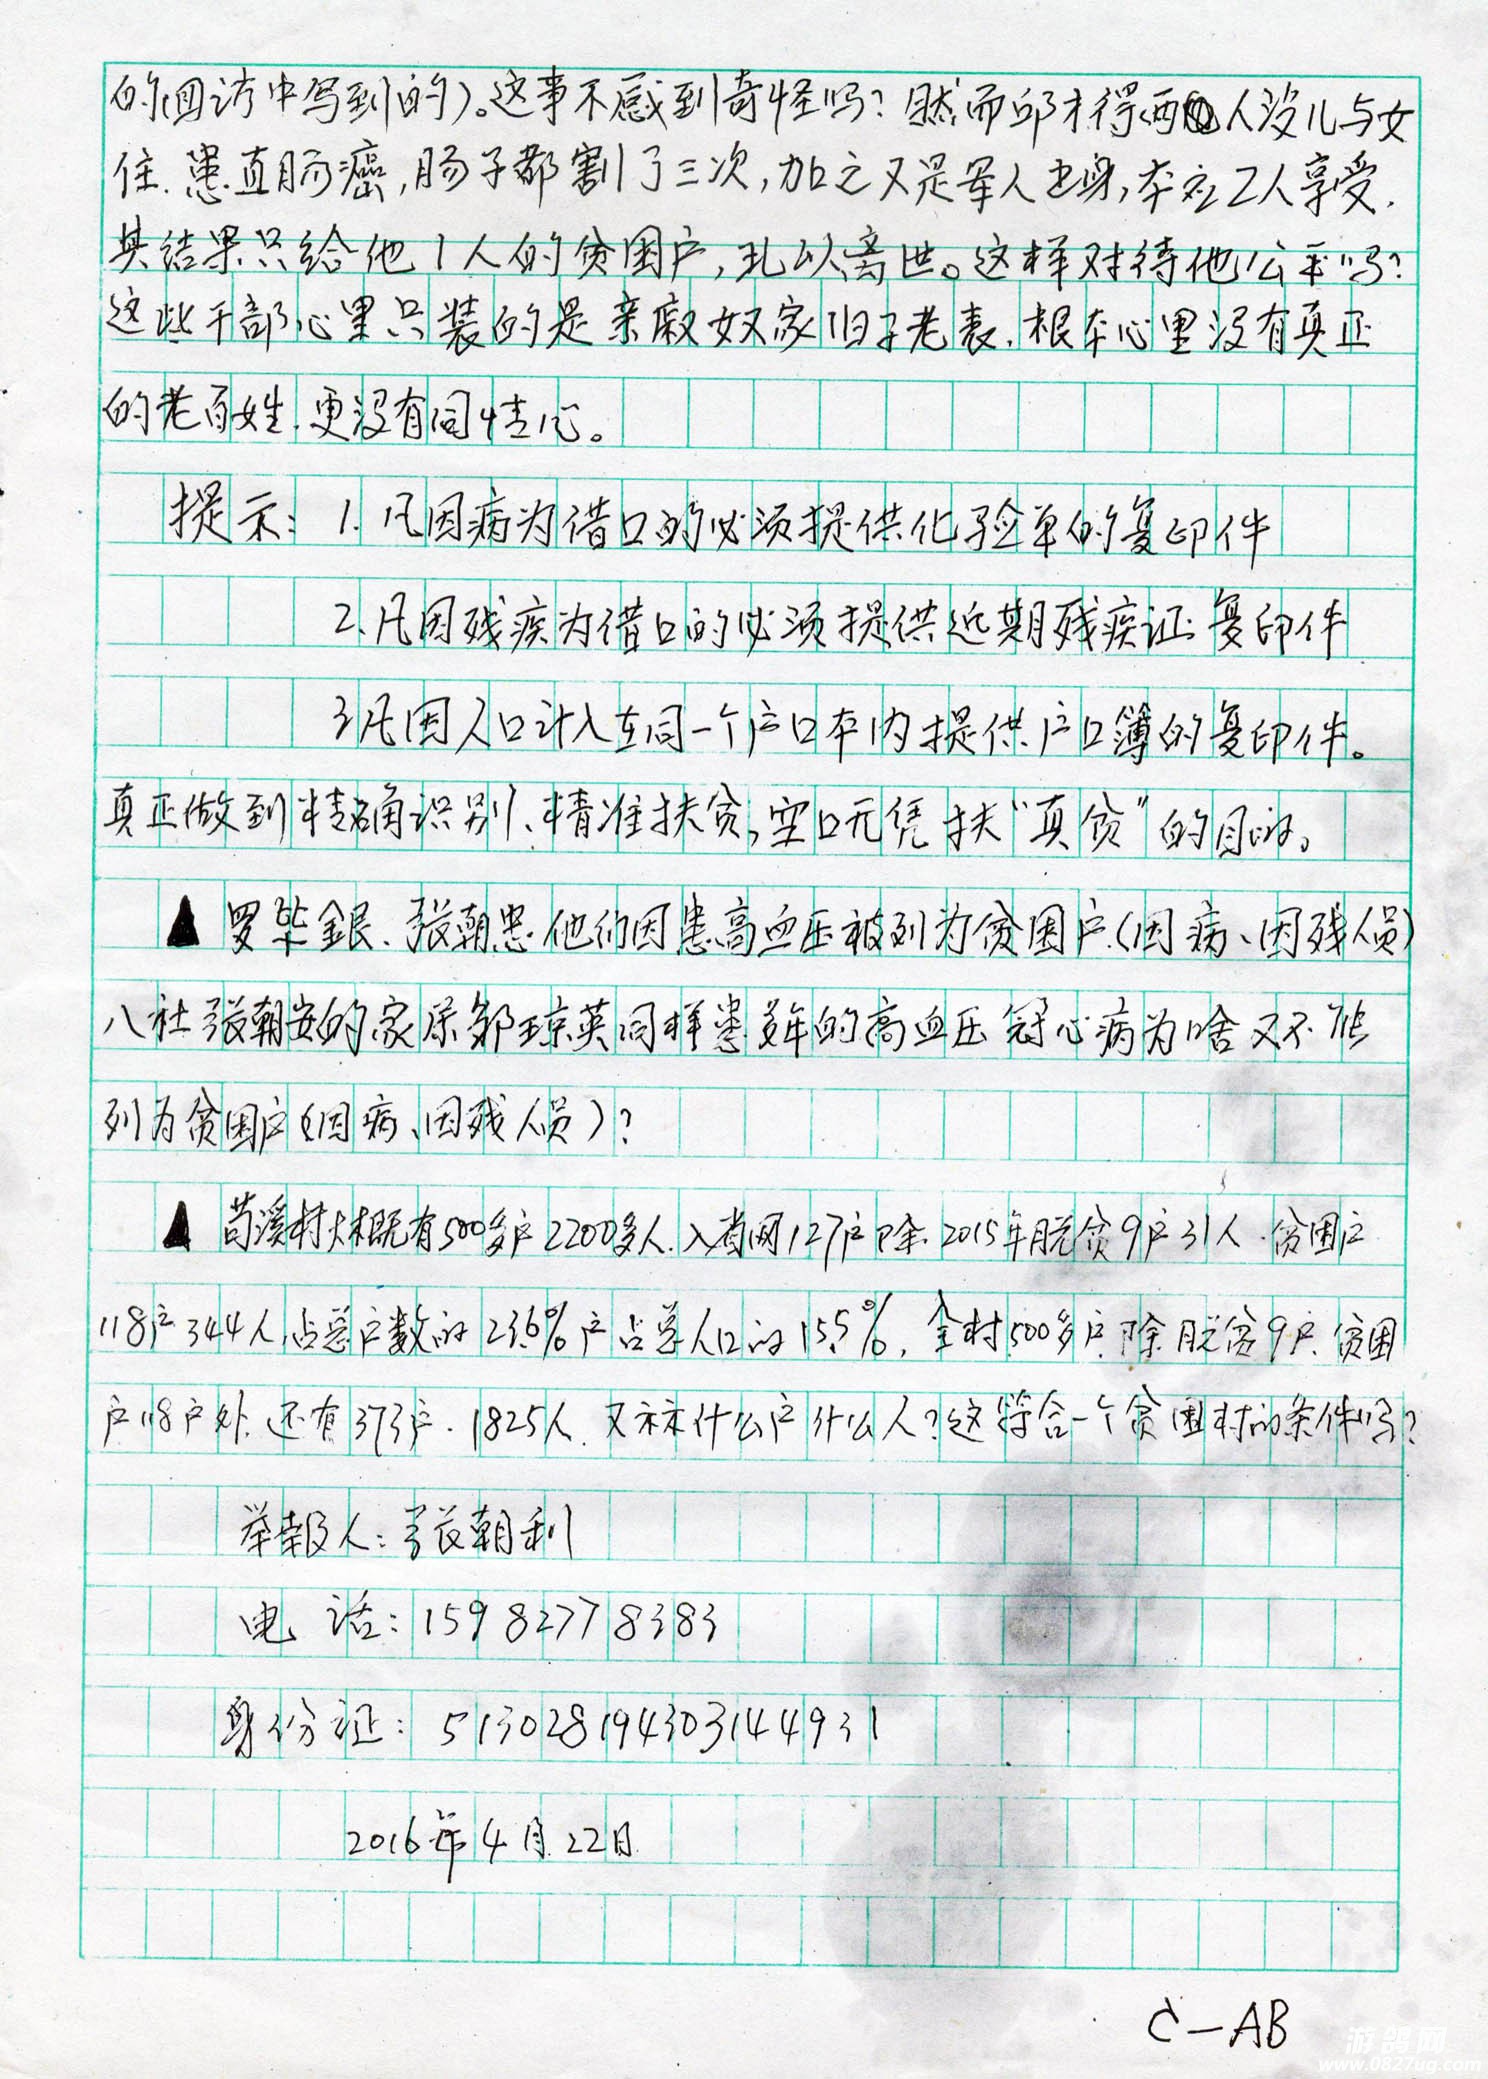 的(回访中写到的)。这事不感到奇怪吗?然而邱才得两人没儿与女
住.患直肠癌,肠子都割了三次,加之又是军人出身,本应2人享受.
其结果只给他1人的贫困户,孔以离世。这样对待他公平吗?
这些干部心里只装的是亲戚奴家旧子老表.根本心里没有真正
的老百姓.更没有同情心。
提示:1.凡因病为借口的必须提供化验单的复印件
2.凡因残疾为借口的必须提供近期残疾证复印件
3凡因人口计入在同一个户口本内提供户口簿的复印件。
真正做到精确识别、精准扶贫,空口无凭扶“真贫”的目的。
▲罗华銀、张朝忠他们因患高血压被列为贫困户.(因病、因残人员)
八社张朝安的家属邹琼英同样患多年的高血压冠心病为啥又不能
列为贫困户(因病、因残人员)?
▲苟溪村大概有500多户2200多人.入省网127户除2015年脱贫9户31人.贫困户
118户344人占总户数的23.6%户占总人口的15.5%.全村500多户除脱贫9户.贫困
户118户外.还有373户.1825人.又算什么户什么人?这符合一个贫困村的条件吗?
举报人:张朝利
电话:15982778383
身份证:513028194303144931
2016年4月22日
C—AB
游鸽网
www.0827ug.com